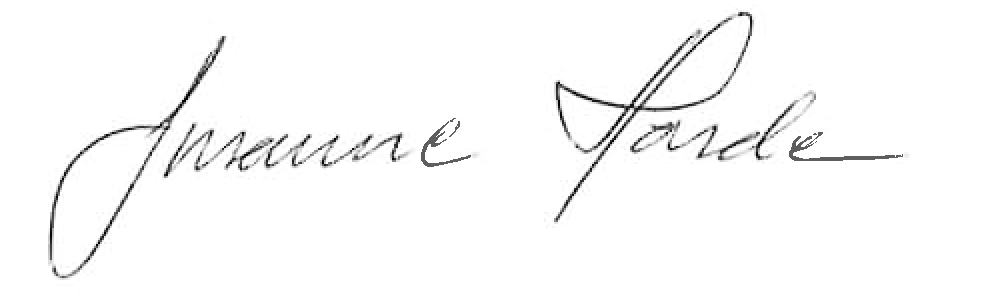 Susanne Parde